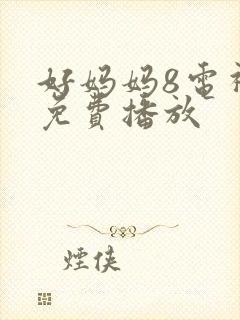 好妈妈8电视
免費播放
煙俠